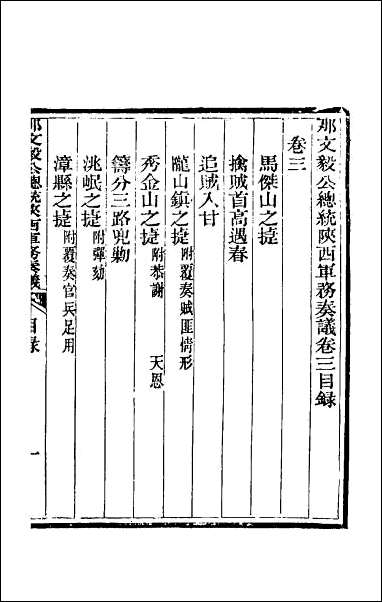 那文毅公總統陝西軍務奏議卷三目錄
卷三
馬傑山之捷
擒賊首高遇春
追賊入甘
隴山鎮之捷附覆奏賊匪情形
秀金山之捷附恭謝 天恩
籌分三路兜勦
洮岷之捷附彈劾
漳縣之捷附覆奏官兵足用
那文毅公總統陝西軍務奏議 目錄 一